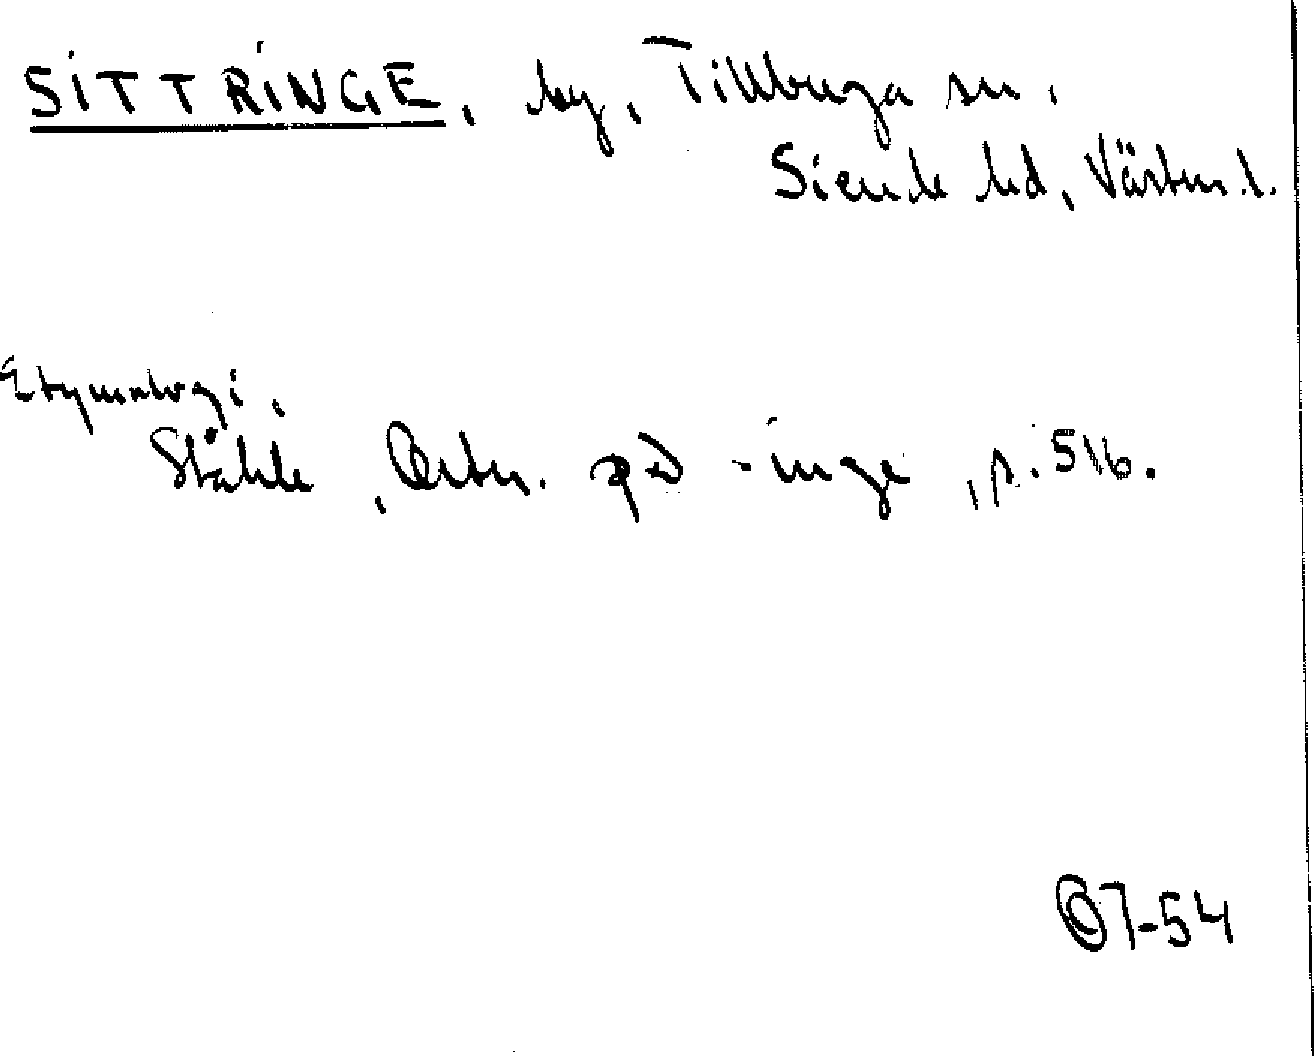 SITTRINGE, by, Tillbuga sn,
Siende hd, Västm.l.
Etymologi,
Ståhle, Ortn. på -inge, s. 516.
7-54